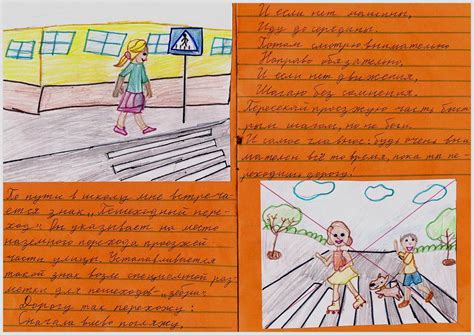 По пути в школу мне встреча-
ется знак „Пешеходный пере-
ход". Он указывает на место
наземного перехода проезжей
части улицы. Устанавливается
такой знак возле специальной раз-
метки для пешеходов - „зебры".
Дорогу так перехожу:
Сначала влево погляжу,
И если нет машины,
Иду до середины.
Потом смотрю внимательно
Направо обязательно,
И если нет движения,
Шагаю без сомнения.
Пересекай проезжую часть быст-
рым шагом, но не беги.
И самое главное: будь очень вни-
мателен всё то время, пока ты пе-
реходишь дорогу!